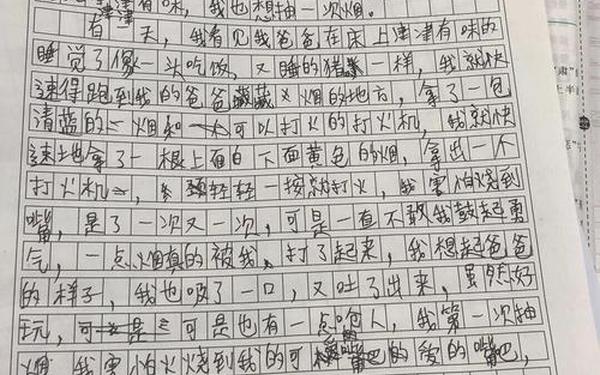 津津有味，我也想抽一次烟。
有一天，我看见我爸爸在床上津津有味的
睡觉了像一头吃饭，又睡的猪一样，我就快
速得跑到我的爸爸藏烟的地方，拿了一包
清蓝的烟和一可以打火的打火机，我就快
速土地拿了一根上面白下面黄色的烟，拿出一个
打火机，轻轻一按就打火，我害怕烧到
嘴，是了一次又一次，可是一直不敢我鼓起勇
气，一点烟真的被我打了起来，我想起爸爸
的样子，我也吸了一口，又吐了出来，虽然好
玩，可是可是也有一点呛人，我第一次抽
烟我害怕火烧到我的可爱的嘴巴的爱的嘴巴，